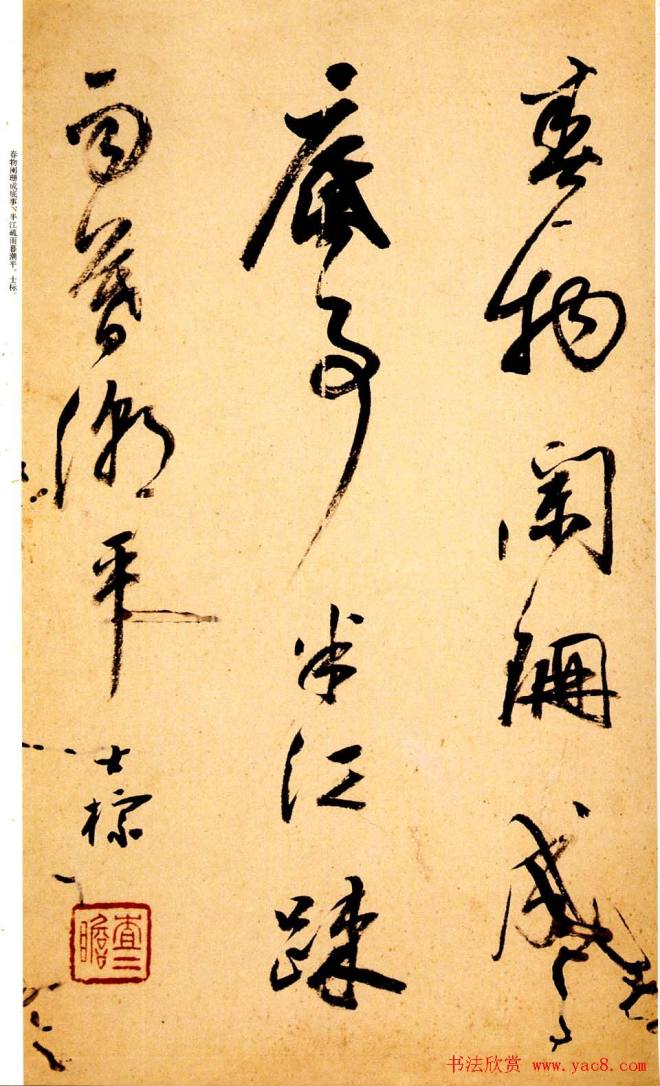 春物闌珊感
底事半江踈
雨暮潮平
士標
查二瞻
春物阑珊成底事，半江疏雨暮潮平。士标。
书法欣赏 www.yac8.com